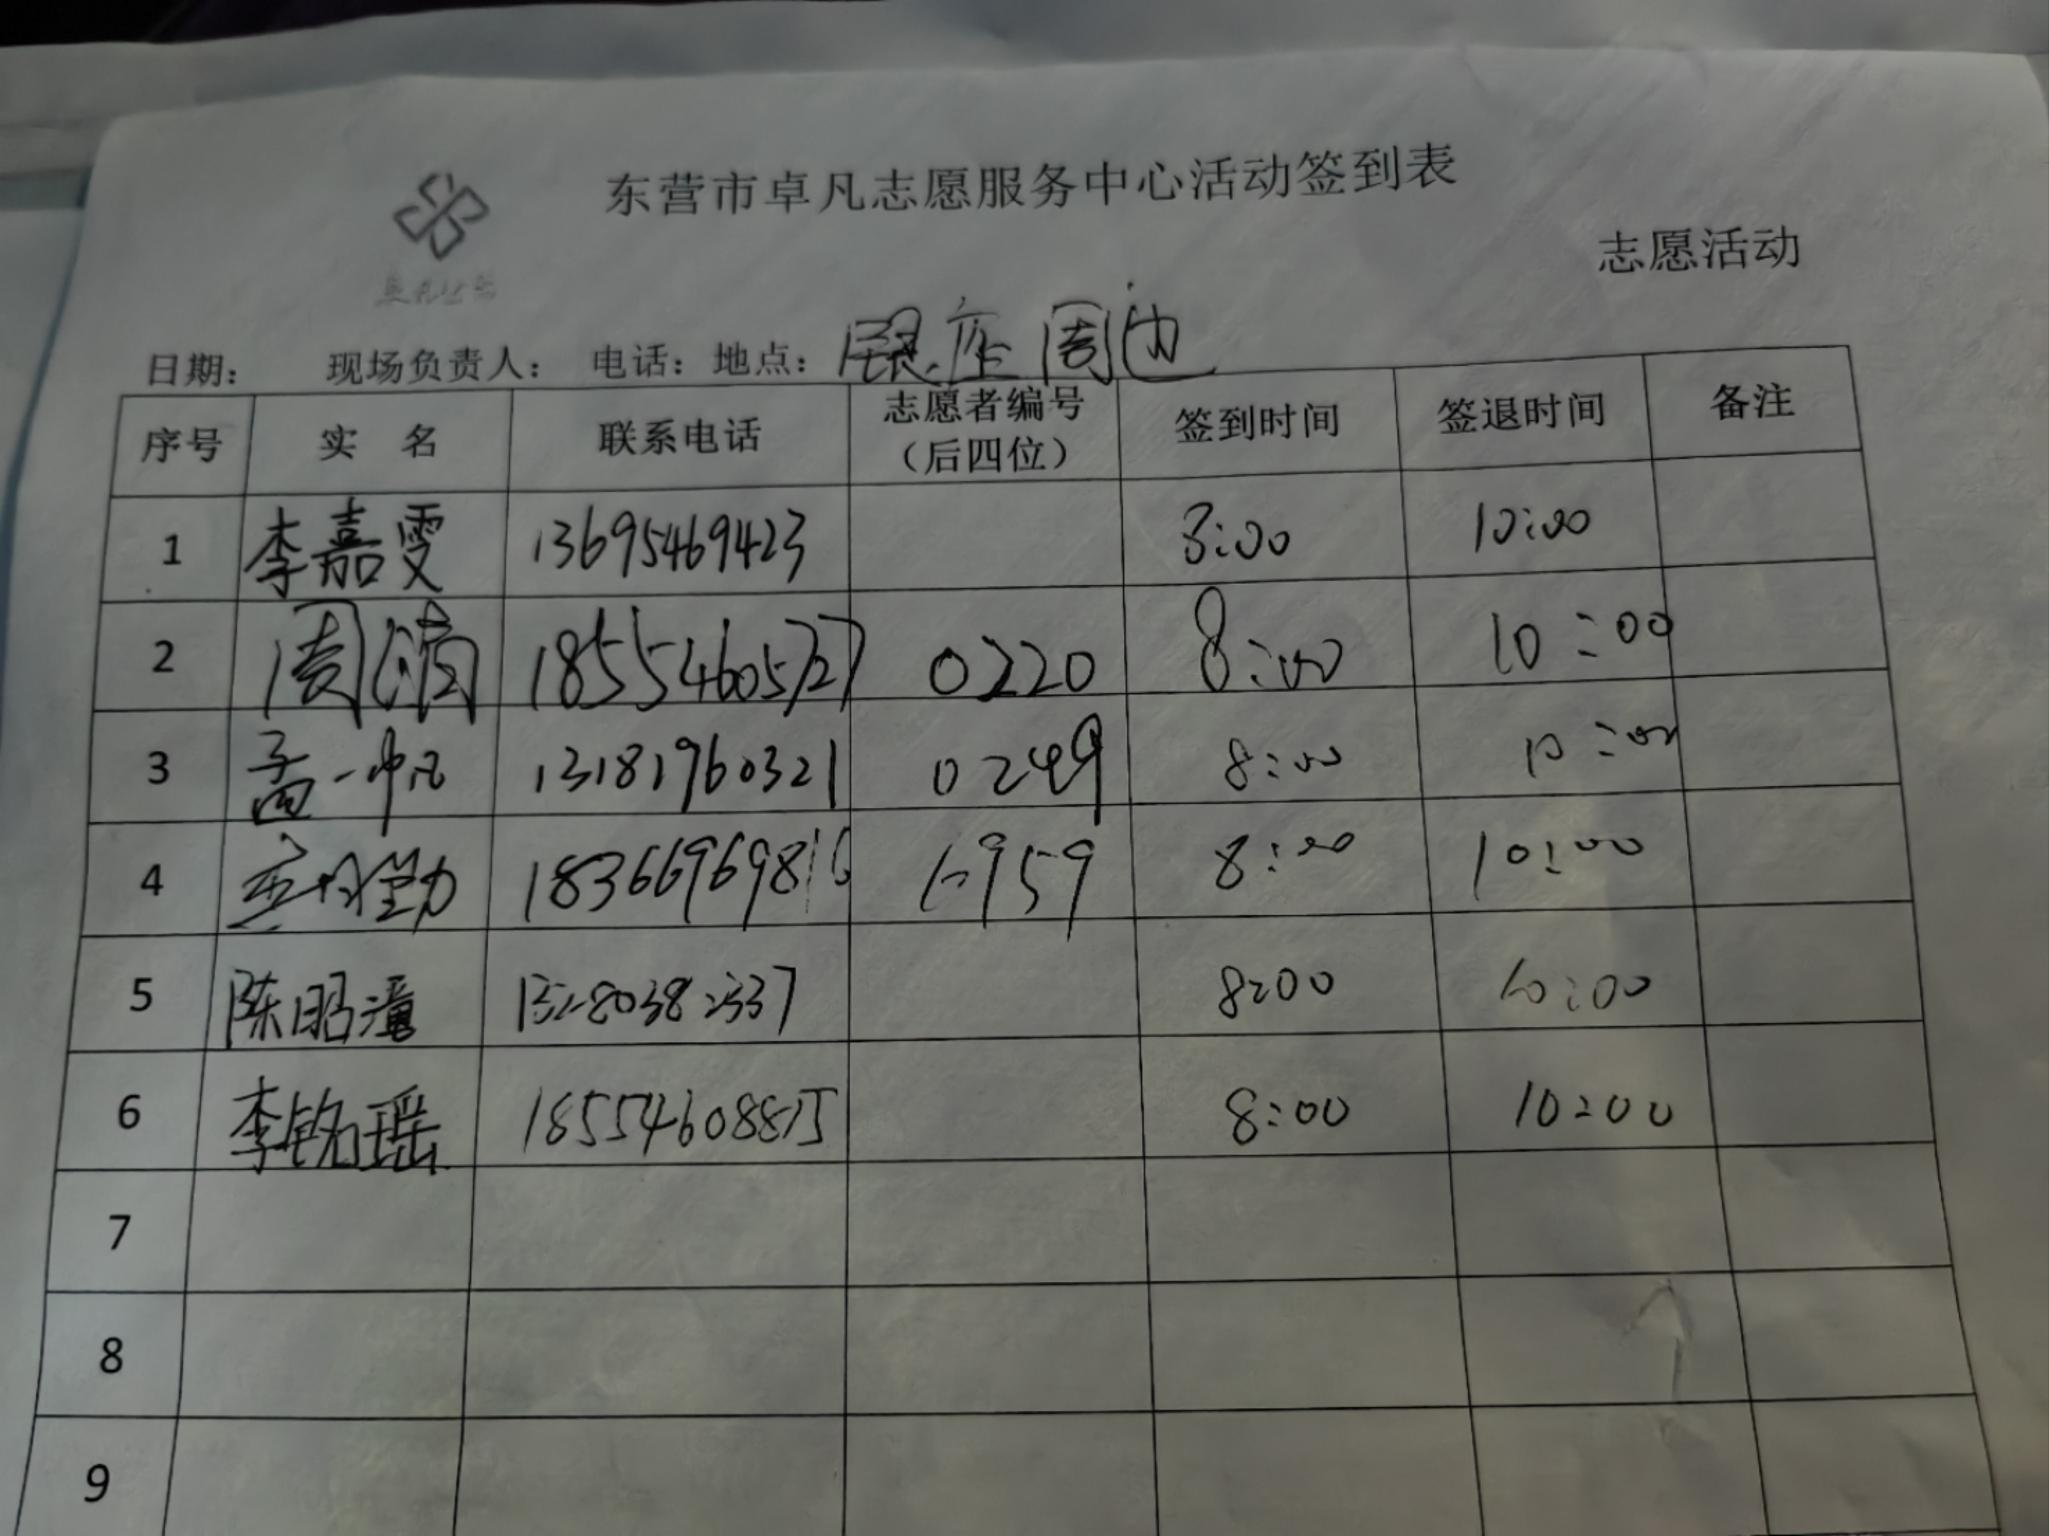 东营市卓凡志愿服务中心活动签到表
志愿活动
日期： 现场负责人： 电话：地点：银座周边
序号 实 名 联系电话 志愿者编号（后四位） 签到时间 签退时间 备注
1 李嘉雯 13695469423 8:00 10:00
2 周娟 18554605727 0220 8:00 10:00
3 孟一帆 13181960321 0249 8:00 10:00
4 18366969816 8:00 10:00
5 陈昭潼 8:00 10:00
6 李铭瑶 18554608815 8:00 10:00
7
8
9